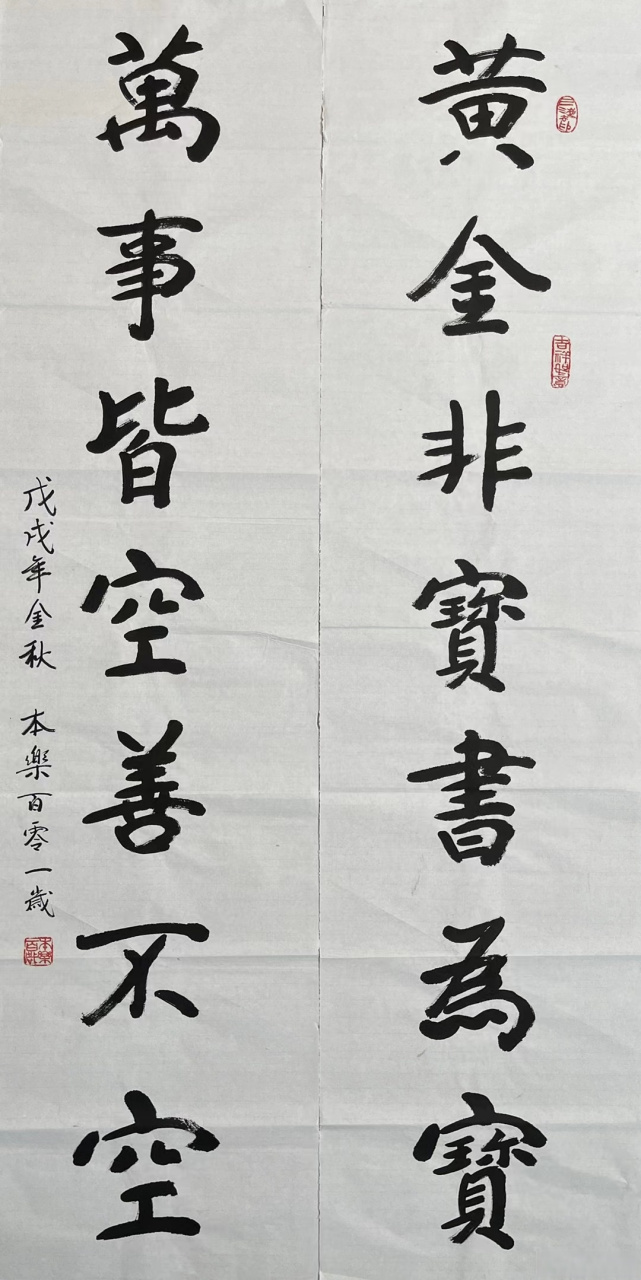 黃金非寶書為寶
萬事皆空善不空
戊戌年金秋 本樂百零一歲